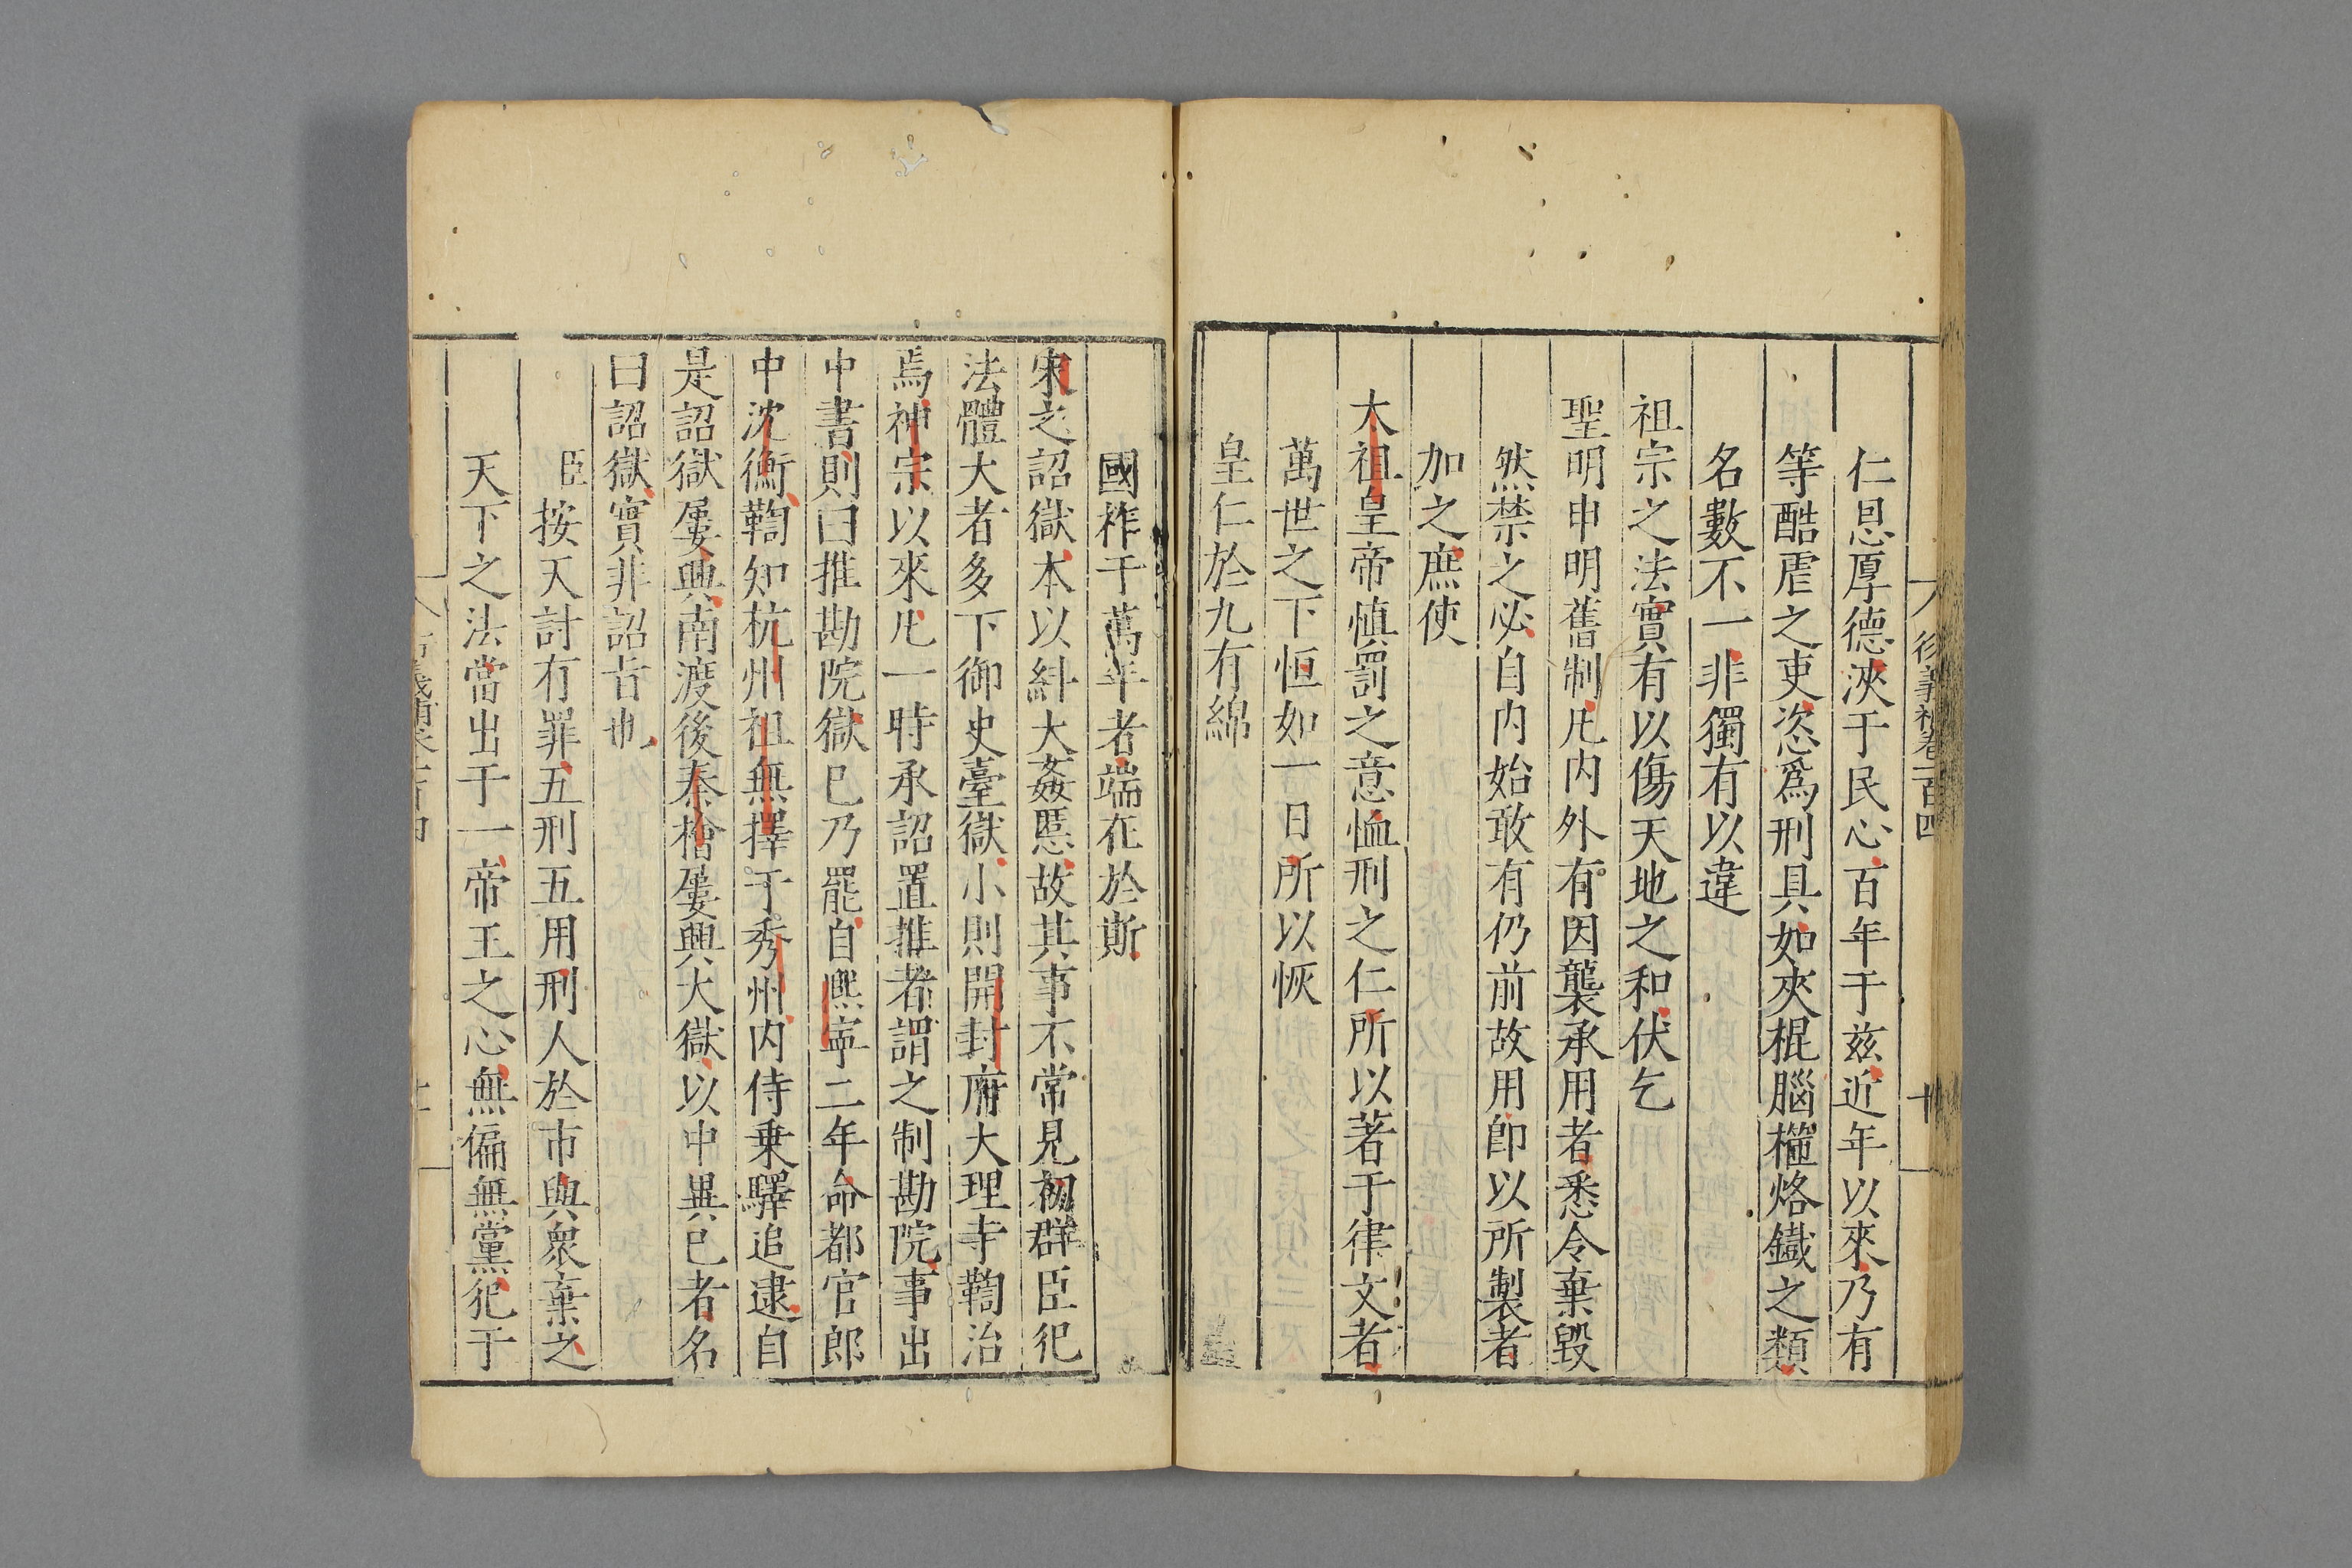 仁恩厚德浹于民心百年于兹近年以來乃有
等酷虐之吏恣爲刑具如夾棍腦箍烙鐵之類
名數不一非獨有以違
祖宗之法實有以傷天地之和伏乞
聖明申明舊制凡内外有因襲承用者悉令棄毀
然禁之必自内始敢有仍前故用即以所製者
加之庶使
太祖皇帝慎罰之意恤刑之仁所以著于律文者
萬世之下恒如一日所以恢
皇仁於九有綿
國祚于萬年者端在於斯
宋之詔獄本以糾大姦慝故其事不常見初群臣犯
法體大者多下御史臺獄小則開封府大理寺鞫治
焉神宗以來凡一時承詔置推者謂之制勘院事出
中書則曰推勘院獄已乃罷自熈寧二年命都官郎
中沈衡鞫知杭州祖無擇于秀州内侍乗驛追逮自
是詔獄屢興南渡後秦檜屢興大獄以中異已者名
曰詔獄實非詔旨也
臣按天討有罪五刑五用刑人於市與衆棄之
天下之法當出于一帝王之心無偏無黨犯于